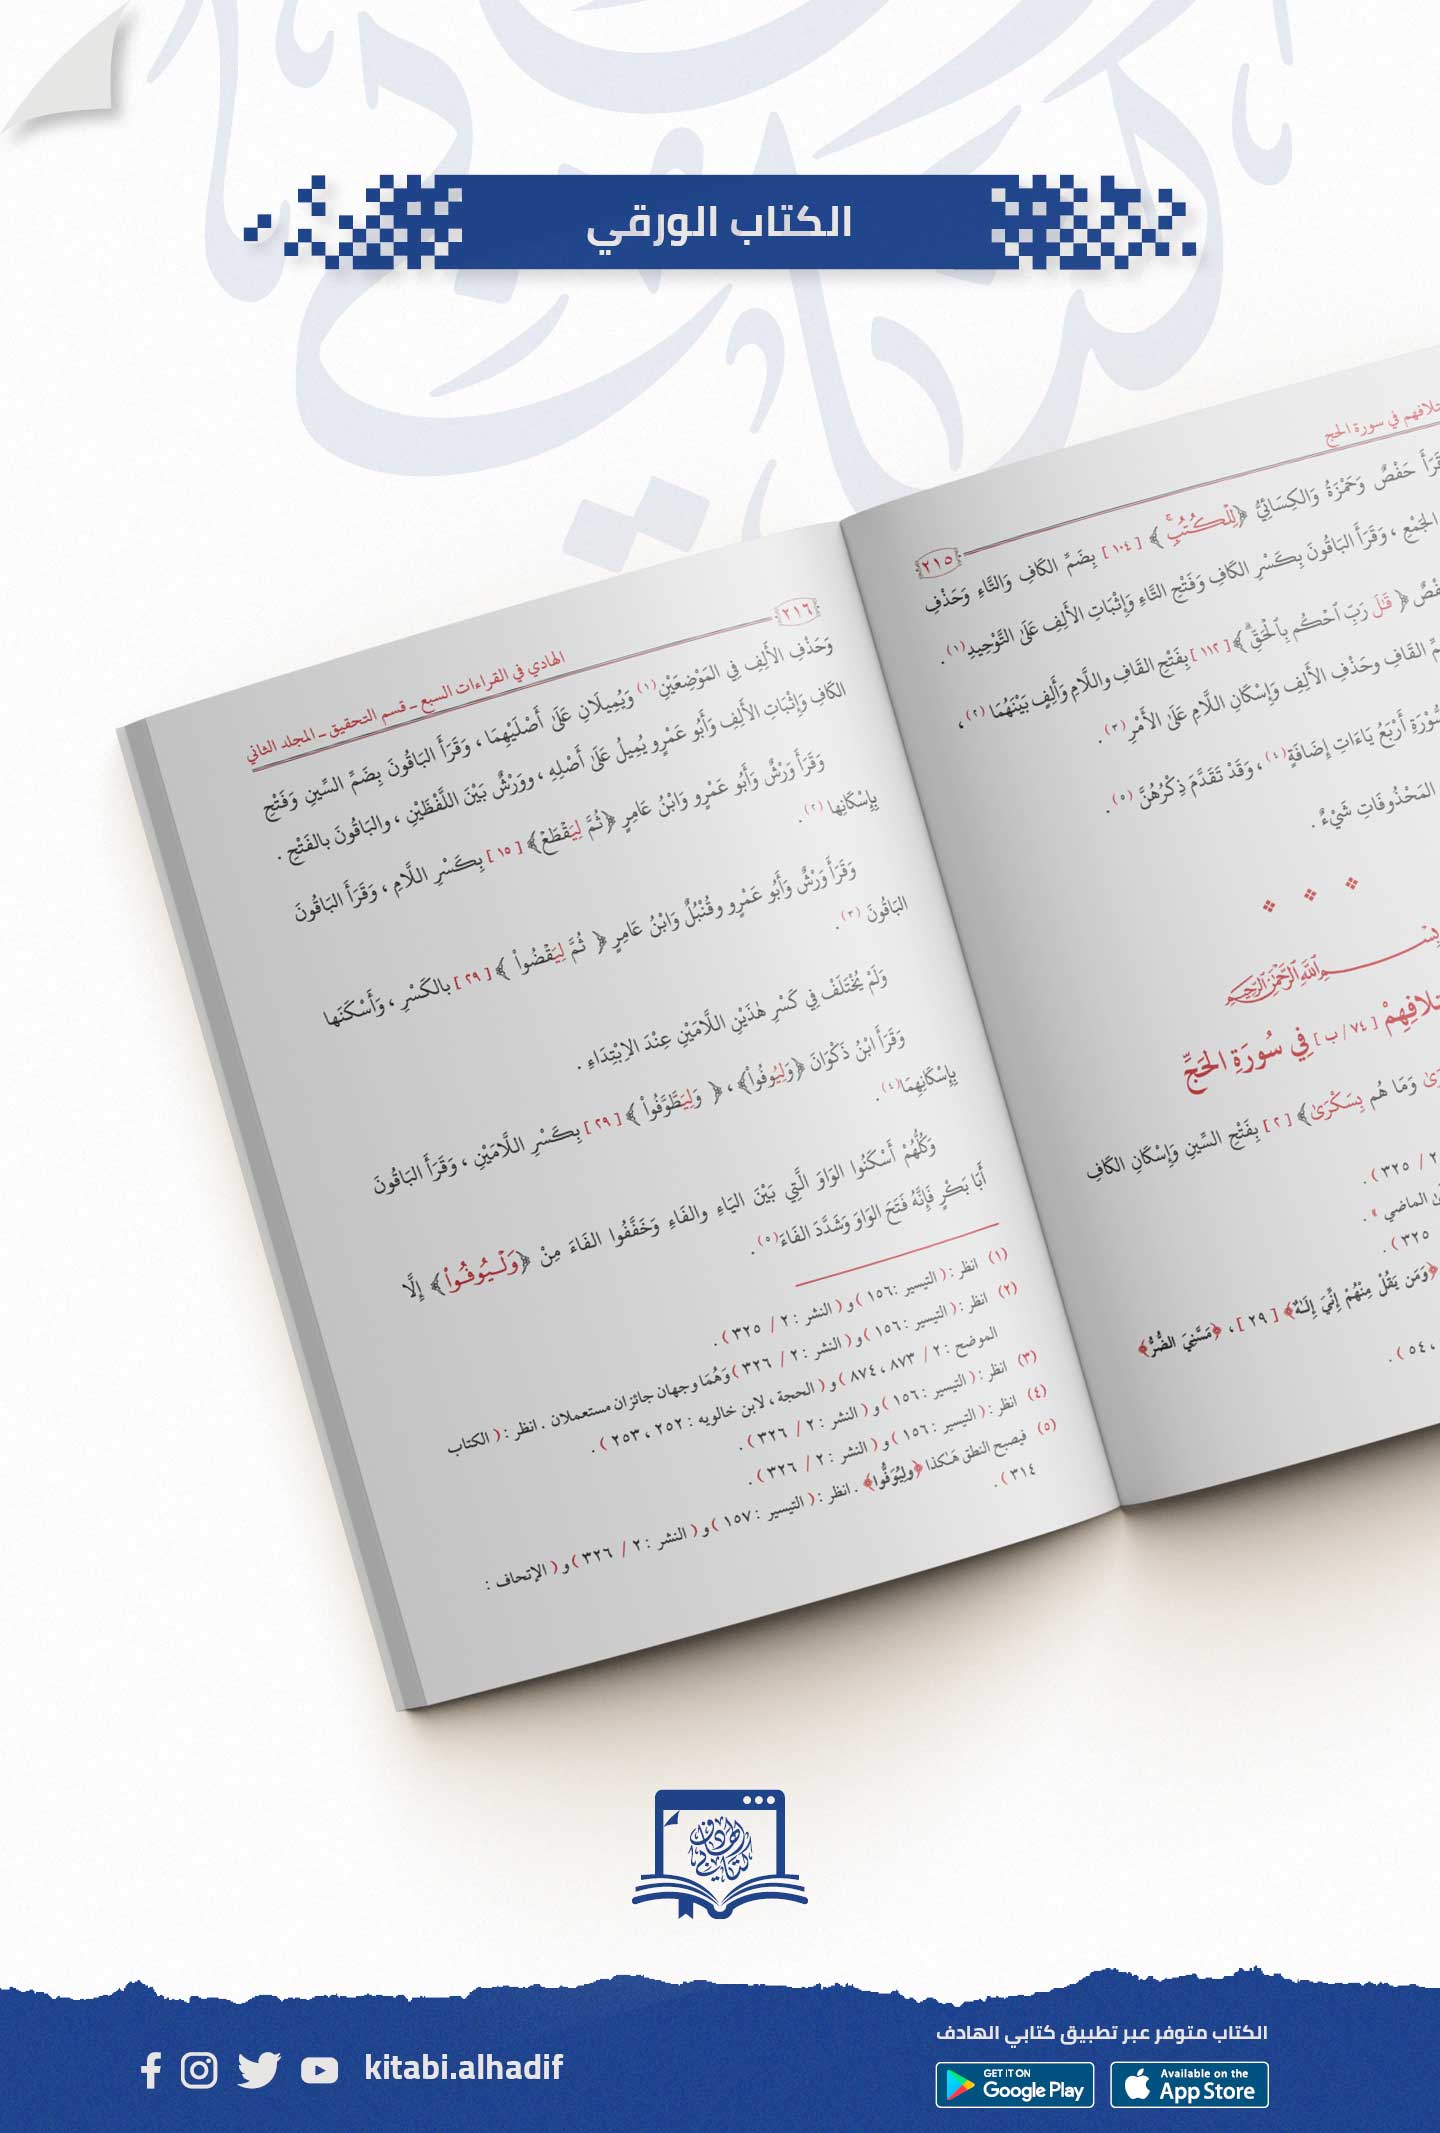 الكتاب الورقي
تلافهم في سورة الحج
٢١٥
قَرَأَ حَفْصٌ وَحَمْزَةُ وَالكِسَائِيُّ ﴿لِلْكُتُبِ﴾ [١٠٤] بِضَمِّ الكَافِ وَالتَّاءِ وَحَذْفِ
الجَمْعِ ، وَقَرَأَ البَاقُونَ بِكَسْرِ الكَافِ وَفَتْحِ التَّاءِ وَإِثْبَاتِ الأَلِفِ عَلَى التَّوْحِيدِ(١) .
فْصٌ ﴿ قَٰلَ رَبِّ ٱحْكُم بِٱلْحَقِّ﴾ [١١٢] بِفَتْحِ القَافِ واللَّامِ وَأَلِفٍ بَيْنَهُمَا (٢) ،
مِّ القَافِ وحَذْفِ الأَلِفِ وَإِسْكَانِ اللَّامِ عَلَى الأَمْرِ (٣) .
سُّوْرَةِ أَرْبَعُ يَاءَاتِ إِضَافَةٍ(٤) ، وَقَدْ تَقَدَّمَ ذِكْرُهُنَّ (٥) .
المَحْذُوفَاتِ شَيْءٌ .
بِسْمِ اللَّهِ الرَّحْمَٰنِ الرَّحِيمِ
تلَافِهِمْ [٧٤/ ب] فِي سُورَةِ الحَجِّ
رَىٰ وَمَا هُم بِسَكْرَىٰ﴾ [٢] بِفَتْحِ السِّينِ وَإِسْكَانِ الكَافِ
٢ / ٣٢٥ ) .
الماضي » .
٣٢٥ ) .
﴿وَمَن يَقُلْ مِنْهُمْ إِنِّيَ إِلَٰهٌ﴾ [ ٢٩ ] ، ﴿مَسَّنِيَ الضُّرُّ﴾
، ٥٤ ) .
٢١٦
الهادي في القراءات السبع ــ قسم التحقيق ــ المجلد الثاني
وَحَذْفِ الأَلِفِ فِي المَوْضِعَيْنِ(١) وَيُمِيلَانِ عَلَى أَصْلَيْهِمَا ، وَقَرَأَ البَاقُونَ بِضَمِّ السِّينِ وَفَتْحِ
الكَافِ وَإِثْبَاتِ الأَلِفِ وَأَبُو عَمْرٍو يُمِيلُ عَلَى أَصْلِهِ ، وورْشٌ بَيْنَ اللَّفْظَيْنِ ، والبَاقُونَ بالفَتْحِ .
وَقَرَأَ وَرْشٌ وَأَبُو عَمْرٍو وَابْنُ عَامِرٍ ﴿ثُمَّ لِيَقْطَعْ﴾ [١٥] بِكَسْرِ اللَّامِ ، وَقَرَأَ البَاقُونَ
بِإِسْكَانِها (٢) .
وَقَرَأَ وَرْشٌ وَأَبُو عَمْرٍو وقُنْبُلٌ وَابْنُ عَامِرٍ ﴿ ثُمَّ لِيَقْضُواْ ﴾ [٢٩] بالكَسْرِ ، وَأَسْكَنَها
البَاقُونَ (٣) .
وَلَمْ يُخْتَلَفْ فِي كَسْرِ هٰذَيْنِ اللَّامَيْنِ عِنْدَ الاِبْتِدَاءِ .
وَقَرَأَ ابْنُ ذَكْوَانَ ﴿وَلِيُوفُواْ﴾ ، ﴿ وَلِيَطَّوَّفُواْ ﴾ [٢٩] بِكَسْرِ اللَّامَيْنِ ، وَقَرَأَ البَاقُونَ
بِإِسْكَانِهِمَا(٤) .
وَكُلُّهُمْ أَسْكَنُوا الوَاوَ الَّتِي بَيْنَ اليَاءِ والفَاءِ وَخَفَّفُوا الفَاءَ مِنْ ﴿وَلْيُوفُواْ﴾ إِلَّا
أَبَا بَكْرٍ فَإِنَّهُ فَتَحَ الوَاوَ وَشَدَّدَ الفَاءَ(٥) .
(١) انظر : ( التيسير : ١٥٦ ) و ( النشر : ٢ / ٣٢٥ ) .
(٢) انظر : ( التيسير : ١٥٦ ) و ( النشر : ٢ / ٣٢٦ ) وَهُمَا وجهان جائزان مستعملان . انظر : ( الكتاب
الموضح : ٢ / ٨٧٣ ، ٨٧٤ ) و ( الحجة ، لابن خالويه : ٢٥٢ ، ٢٥٣ ) .
(٣) انظر : ( التيسير : ١٥٦ ) و ( النشر : ٢ / ٣٢٦ ) .
(٤) انظر : ( التيسير : ١٥٦ ) و ( النشر : ٢ / ٣٢٦ ) .
(٥) فيصبح النطق هَٰكذا ﴿ولِيُوَفُّوا﴾ . انظر : ( التيسير : ١٥٧ ) و ( النشر : ٢ / ٣٢٦ ) و ( الإتحاف :
٣١٤ ) .
كتابي الهادف
الكتاب متوفر عبر تطبيق كتابي الهادف
kitabi.alhadif
GET IT ON
Google Play
Available on the
App Store